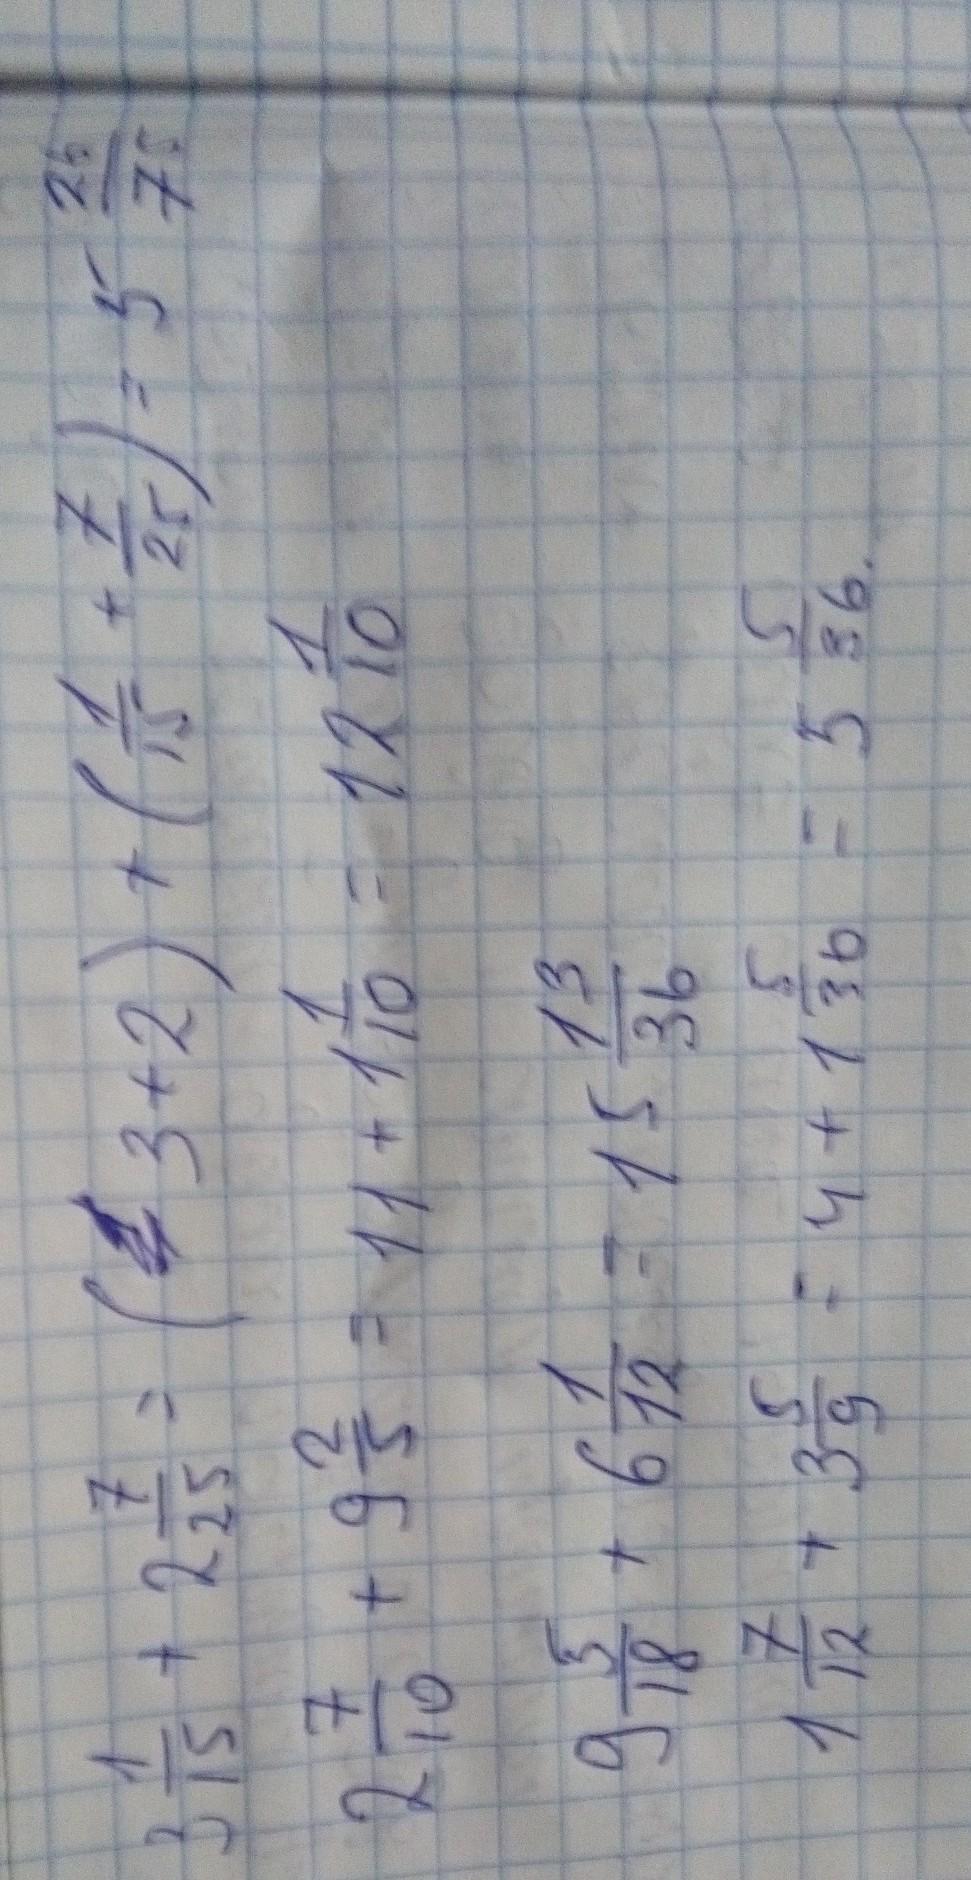 3 1/15 + 2 7/25 = (3+2) + (1/15 + 7/25) = 5 26/75
2 7/10 + 9 2/5 = 11 + 1 1/10 = 12 1/10
9 5/18 + 6 1/12 = 15 13/36
1 7/12 + 3 5/9 = 4 + 1 5/36 = 5 5/36.